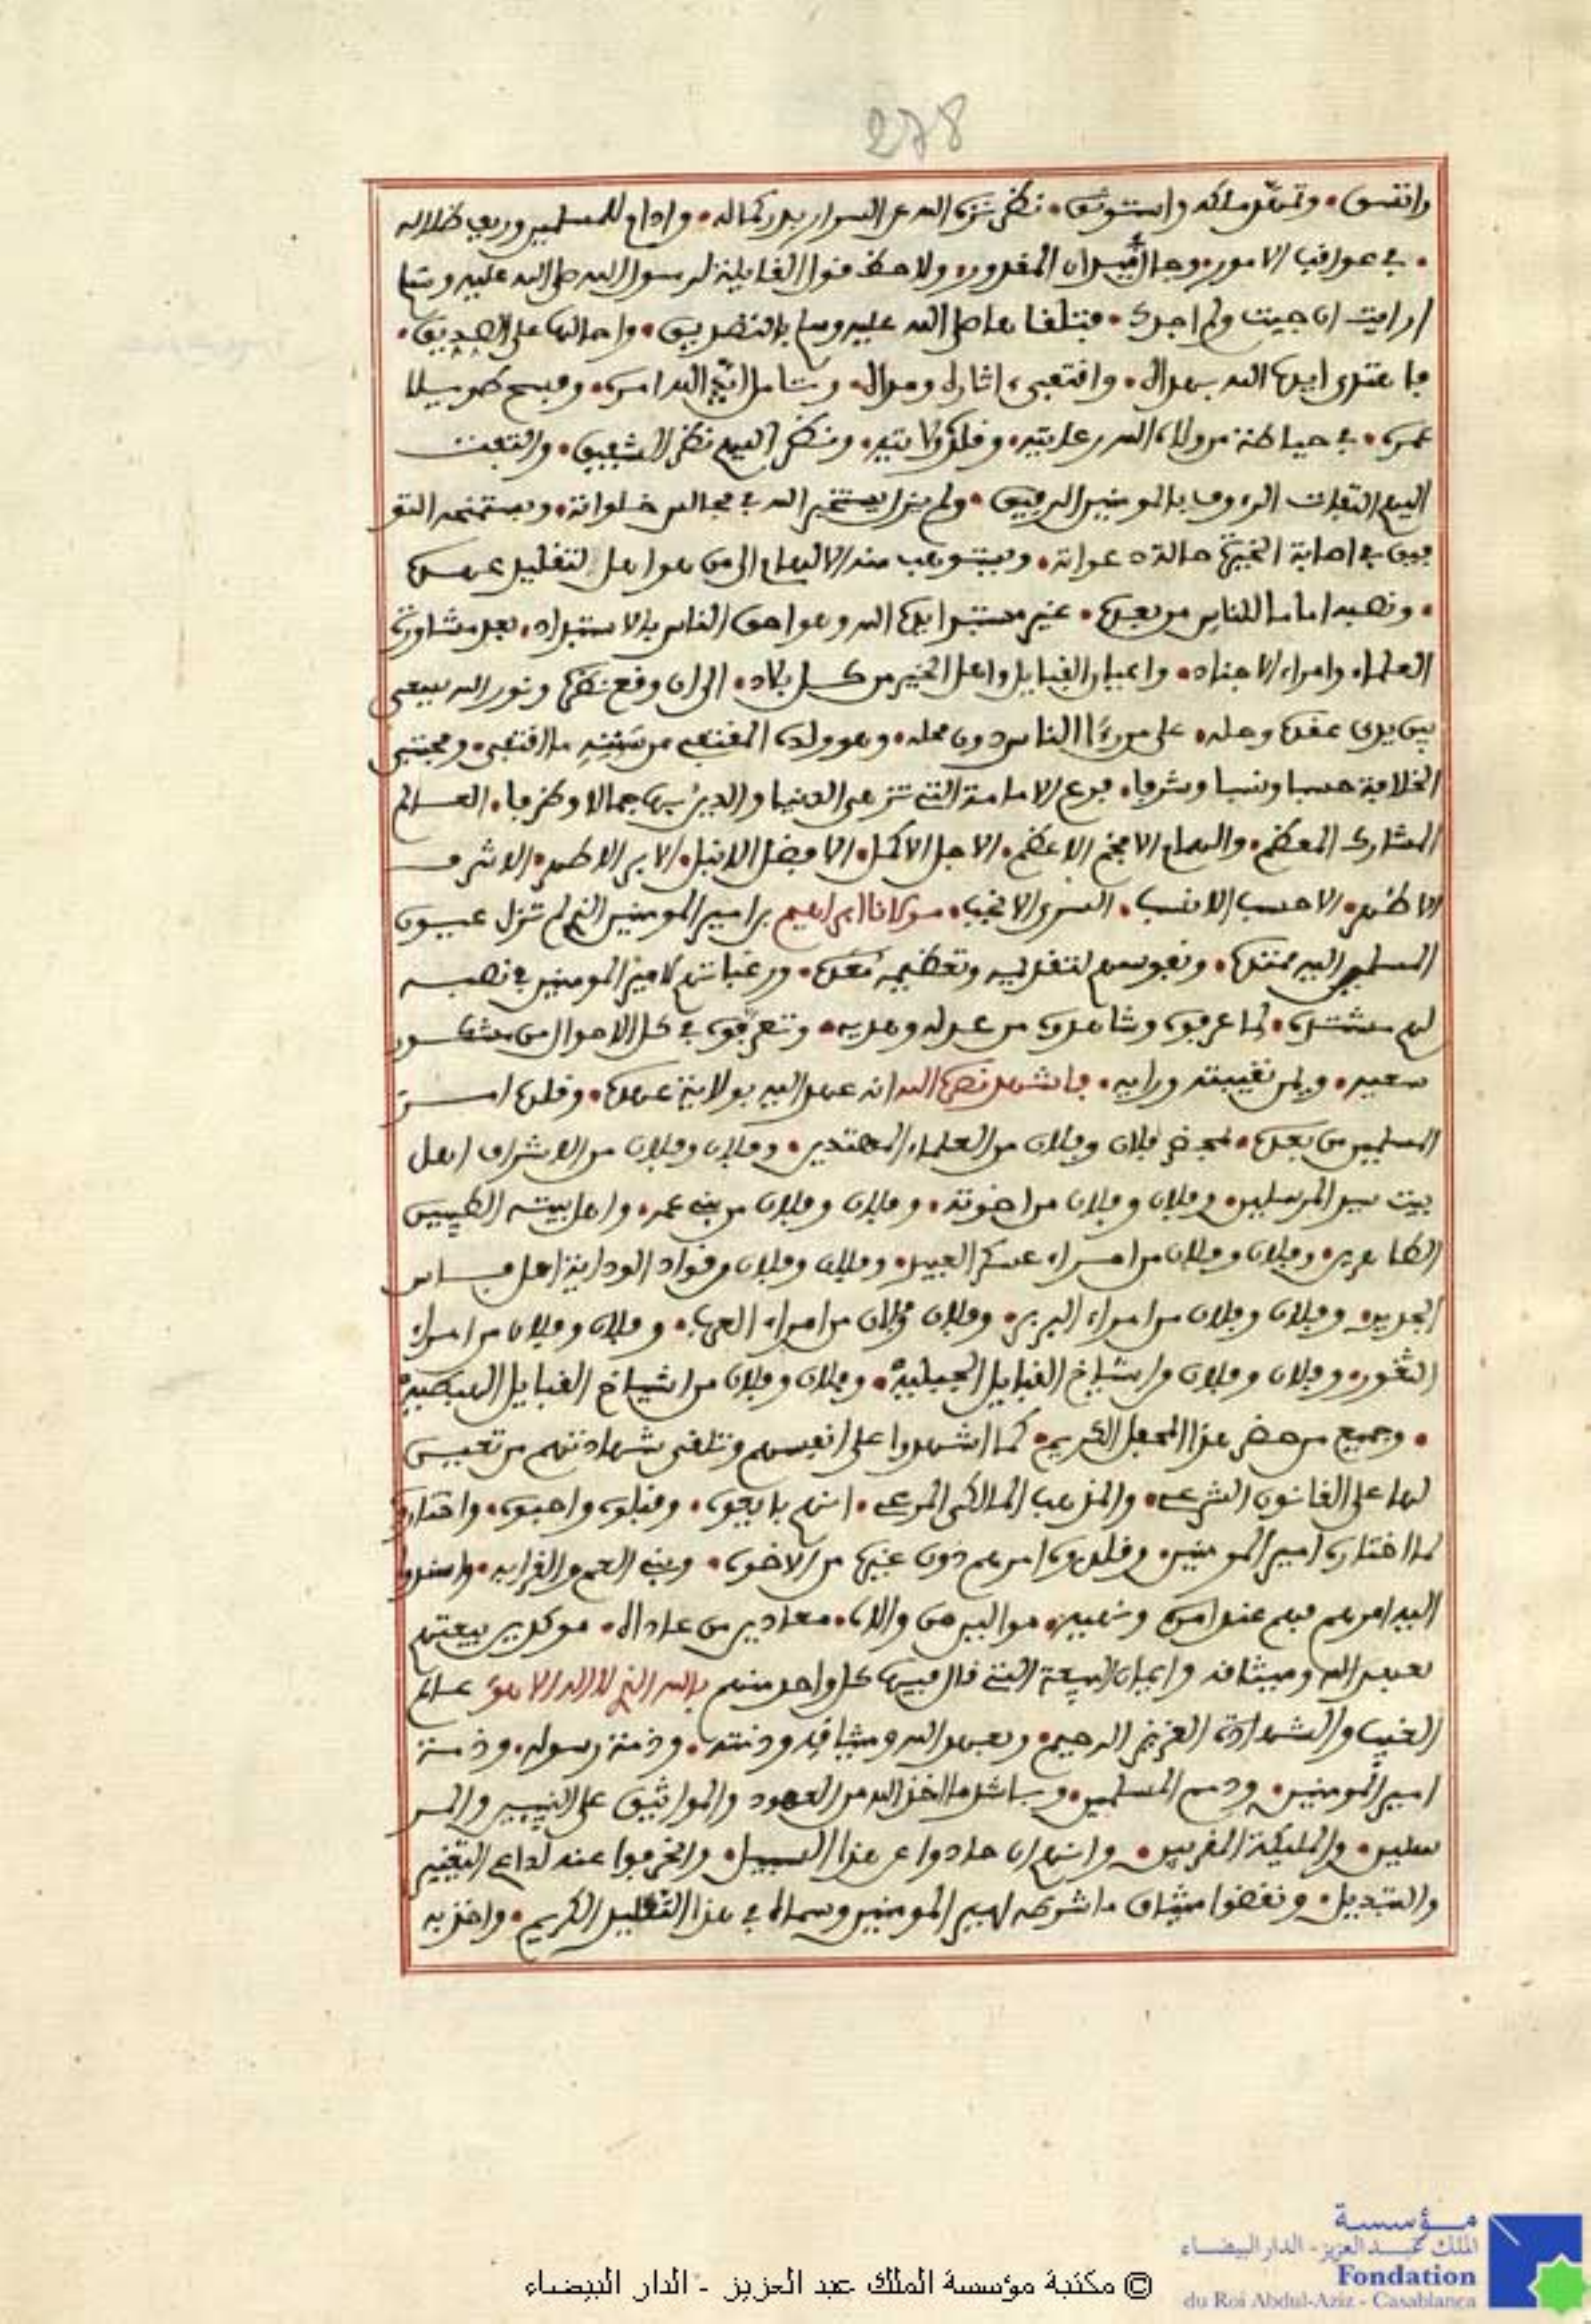 278
واتسق. وتمهد ملكه واستوثق. نظر نزه الله عن السرار بدر كماله. وادام للمسلمين وريف ظلاله
. في عواقب الامور. وجال المقدور. ولاحظ قول القايلة لرسول الله صلى الله عليه وسلم
ارايت ان جيت ولم اجدك. فتلقاها صلى الله عليه وسلم بالتصديق. واحالها على الصديق.
فاهتدى ايده الله بهداه. واقتفى اثاره ومداه. وتامل ايد الله امره. وفسح طويلا
عمره. في حياطة من ولاه الله رعايته. وقلده ولايته. ونظر اليهم نظر الشفيق. والتفت
اليهم التفات الرءوف بالمومنين الرفيق. ولم يزل يستخير الله في مجالس خلواته. ويستمنحه التو
فيق في اصابة الخيرة حالة دعواته. ويستوهب منه الالهام الى من هو اهل لتقليد عهده
. ونصبه اماما للناس من بعده. غير مستبد ايده الله وهو احق الناس بالاستبداد. بعد مشاورة
العلماء وامراء الاجناد. واعيان القبايل واهل الخير من كل بلاد. الى ان وقع نظره ونور الله يسعى
بين يدي عقده وحله. على من رءا الناس دون محله. وهو ولده المقتفي من سننه ما اقتفى. ومجتبى
الخلافة حسبا ونسبا وشرفا. فرع الامامة التي تزهى الدنيا والدين بها جمالا وظرفا. العالم
المشارك المعظم. والهمام الافخم الاعظم. الاجل الاكمل. الافضل الانبل. الابر الاطهر. الاشرف
الاظهر. الاحسب الانسب. السري الانجب. مولانا ابراهيم بن امير المومنين الذي لم تزل عيون
المسلمين اليه ممتدة. ونفوسهم لتقديمه وتعظيمه معدة. ورغباتهم لامير المومنين في نصبه
لهم مشتدة. لما عرفوه وشاهدوه من عدله وهديه. وتعرفوه في كل الاحوال من مشكور
سعيه. ويمن نقيبته ورايه. فاشهد نصره الله انه عهد اليه بولاية عهده. وقلده امر
المسلمين من بعده. بمحضر فلان وفلان من العلماء المهتدين. وفلان وفلان من الاشراف اهل
بيت سيد المرسلين. وفلان وفلان من اخوته. وفلان وفلان من بني عمه. واهل بيته الطيبين
الطاهرين. وفلان وفلان من امراء عسكر العبيد. وفلان وفلان وقواد الوداية اهل فاس
الجديد. وفلان وفلان من امراء البربر. وفلان وفلان من امراء العرب. وفلان وفلان من امراء
الثغور. وفلان وفلان واشياخ القبايل الجبلية. وفلان وفلان من اشياخ القبايل الهبطية
. وجميع من حضر هذا المحفل الكريم. كما اشهدوا على انفسهم وتلقى شهادتهم من تعين
لها على القانون الشرعي. والمذهب المالكي المرعي. انهم بايعوه. وقبلوه واحبوه. واختاروا
لما اختاره امير المومنين. وقلدوه امرهم دون غيره من الاخوة. وبني العم والقرابه. واسندوا
اليه امرهم فيهم عند امره ونهيه. موالين من والاه. معادين من عاداه. موكدين بيعتهم
بعهد الله وميثاقه وايمان البيعة التي قال فيها كل واحد منهم بالله الذي لا اله الا هو عالم
الغيب والشهادة العزيز الرحيم. وبعهد الله وميثاقه وذمته. وذمة رسوله. وذمة
امير المومنين. وذمم المسلمين. وباشد ما اخذ الله من العهود والمواثيق على النبيين والمر
سلين. والمليكة المقربين. وانهم ان حادوا عن هذا السبيل. وانحرفوا عنه لداع التغيير
والتبديل. ونقضوا ميثاق ما شرطه امير المومنين وسماه في هذا التقليد الكريم. واخذ به
مؤسسة
الملك عبد العزيز - الدار البيضاء
Fondation
du Roi Abdul-Aziz - Casablanca
© مكتبة مؤسسة الملك عبد العزيز - الدار البيضاء